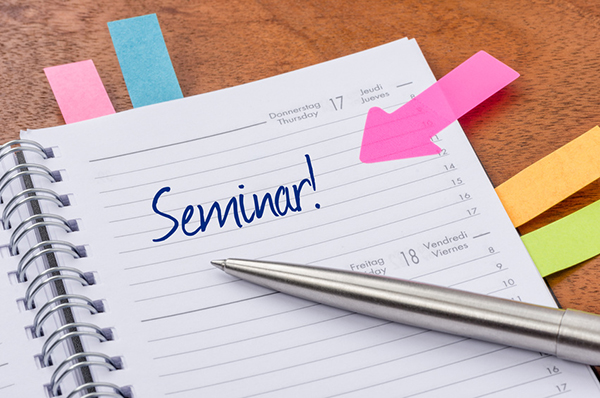 Donnerstag 17 Jeudi
Thursday Jueves
8
10
11
12
Seminar!
14
15
16
17
Freitag 18 Vendredi
day Viernes
8
9
10
12
15
16